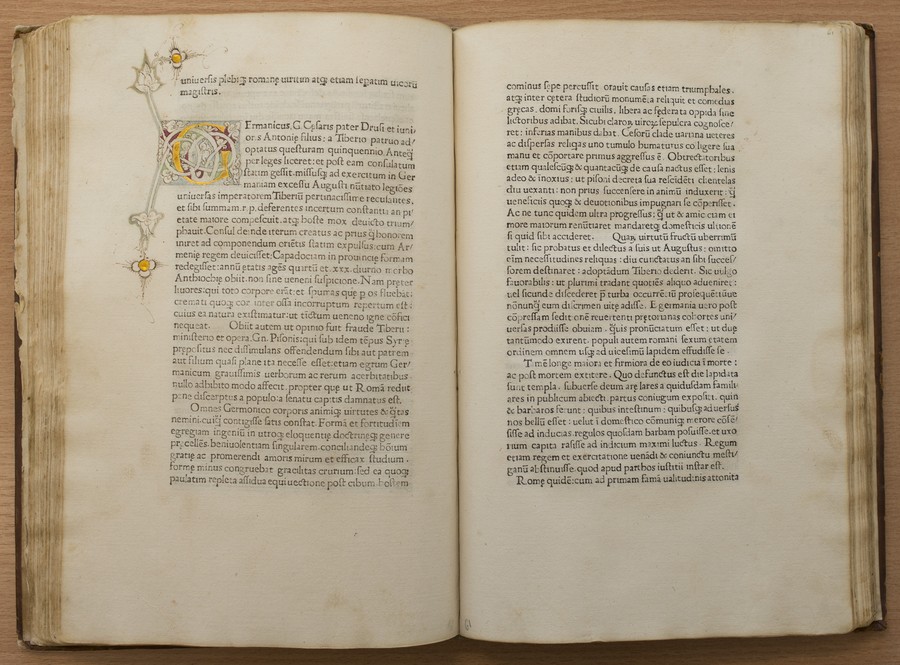 universis plebiq; romanę uiritim atq; etiam sepatim uicorū
magistris.
GErmanicus. G. Cęsaris pater Drusi et iuni/
oris Antonię filius: a Tiberio patruo ad/
optatus questuram quinquennio. Anteq̄
per leges liceret: et post eam consulatum
statim gessit. missusq; ad exercitum in Ger
maniam excessu Augusti nūtiato legiōes
uniuersas imperatorem Tiberiū pertinacissime recusantes.
et sibi summam .r. p. deferentes incertum constantia an pi/
etate maiore compescuit. atq; hoste mox deuicto trium/
phauit. Consul deinde iterum creatus ac prius q̄ honorem
iniret ad componendum oriētis statum expulsus: cum Ar/
menię regem deuicisset: Capadociam in prouincię formam
redegisset: annū ętatis agēs quartū et .xxx. diurno morbo
Anthiochię obiit. non sine ueneni suspicione. Nam pręter
liuores: qui toto corpore erāt: et spumas quę p os fluebāt:
cremati quoq; cor inter ossa incorruptum repertum est:
cuius ea natura existimatur: ut tictum ueneno igne cōfici
nequeat. Obiit autem ut opinio fuit fraude Tiberii:
ministerio et opera. Gn. Pisonis: qui sub idem tēpus Syrię
prępositus nec dissimulans offendendum sibi aut patrem
aut filium quasi plane ita necesse esset: etiam egrum Ger/
manicum grauissimis uerborum ac rerum acerbitatibus
nullo adhibito modo affecit. propter quę ut Romā rediit
pęne discerptus a populo: a senatu capitis damnatus est.
Omnes Germonico corporis animiq; uirtutes & q̄tas
nemini cuiq̄ contigisse satis constat. Formā et fortitudinem
egregiam ingeniū in utroq; eloquentię doctrinęq; genere
pręcellēs. beniuolentiam singularem. conciliandęq; hoīum
gratię ac promerendi amoris mirum et efficax studium.
formę minus congruebat gracilitas crurium sed ea quoq;
paulatim repleta assidua equi uectione post cibum. hostem
cominus sępe percussit. orauit causas etiam triumphales.
atq; inter cętera studiorū monumēta reliquit et comędias
gręcas. domi forisq; ciuilis. libera ac fęderata oppida sine
lictoribus adibat. Sicubi clarorū uirorę sepulcra cognosce/
ret: inferias manibus dabat. Cesorū clade uariana ueteres
ac dispersas reliqas uno tumulo humaturus colligere sua
manu et cōportare primus aggressus ē. Obtrectatoribus
etiam qualescūq; & quantacūq; de causa nactus esset: lenis
adeo & inoxius: ut pisoni decreta sua rescidēti clientelas
diu uexanti: non prius succensere in animū induxerit: q̄
ueneficiis quoq; & deuotionibus impugnari se cōperisset.
Ac ne tunc quidem ultra progressus: q̄ ut & amicitiam et
more maiorum renūtiaret mandaretq; domesticis ultionē
si quid sibi accideret. Quaꝝ uirtutū fructū uberrimū
tulit: sic probatus et dilectus a suis ut Augustus: omitto
eīm necessitudines reliquas: diu cunctatus an sibi succes/
sorem destinaret: adoptādum Tiberio dederit. Sic uulgo
fauorabilis: ut plurimi tradant quotiēs aliquo adueniret:
uel sicunde discederet p̄ turba occurrētiū prosequētiūue
nōnunq̄ eum discrimen uitę adisse. E germania uero post
cōpressam seditionē reuertenti pretorianas cohortes uni/
uersas prodiisse obuiam. q̄uis pronūciatum esset: ut duę
tantūmodo exirent. populi autem romani sexum etatem
ordinem omnem usq; ad uicesimū lapidem effudisse se.
Tamē longe maiora et firmiora de eo iudicia ī morte:
ac post mortem extitere. Quo defunctus est die lapidata
sunt templa. subuerse deum arę lares a quibusdam famili/
ares in publicum abiecti. partus coniugum expositi. quin
& barbaros ferunt: quibus intestinum: quibusq; aduersus
nos bellū esset: uelut ī domestico cōmuniq; merore cōsē/
sisse ad inducias. regulos quosdam barbam posuisse. et uxo
rium capita rasisse ad indicium maximi luctus. Regum
etiam regem et exercitatione uenādi & coniunctu mesti/
ganū abstinuisse. quod apud parthos iustitii instar est.
Romę quidē: cum ad primam famā ualitudinis attonita